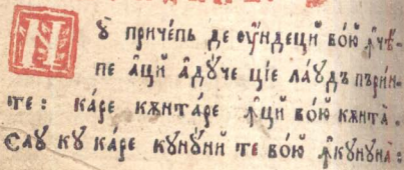 НꙊ причéпь де сꙋ́ндецй во́ю ꙟчѣ-
пе а̂цй а̂дꙋче цíе лáꙋдъ пъри́н-
те : кáре кѫнтáре ꙟцй во́ю кѫнта̀.
Сáꙋ кꙋ кáре кꙋнꙋ́ний те во́ю ꙟкꙋнꙋна̀: